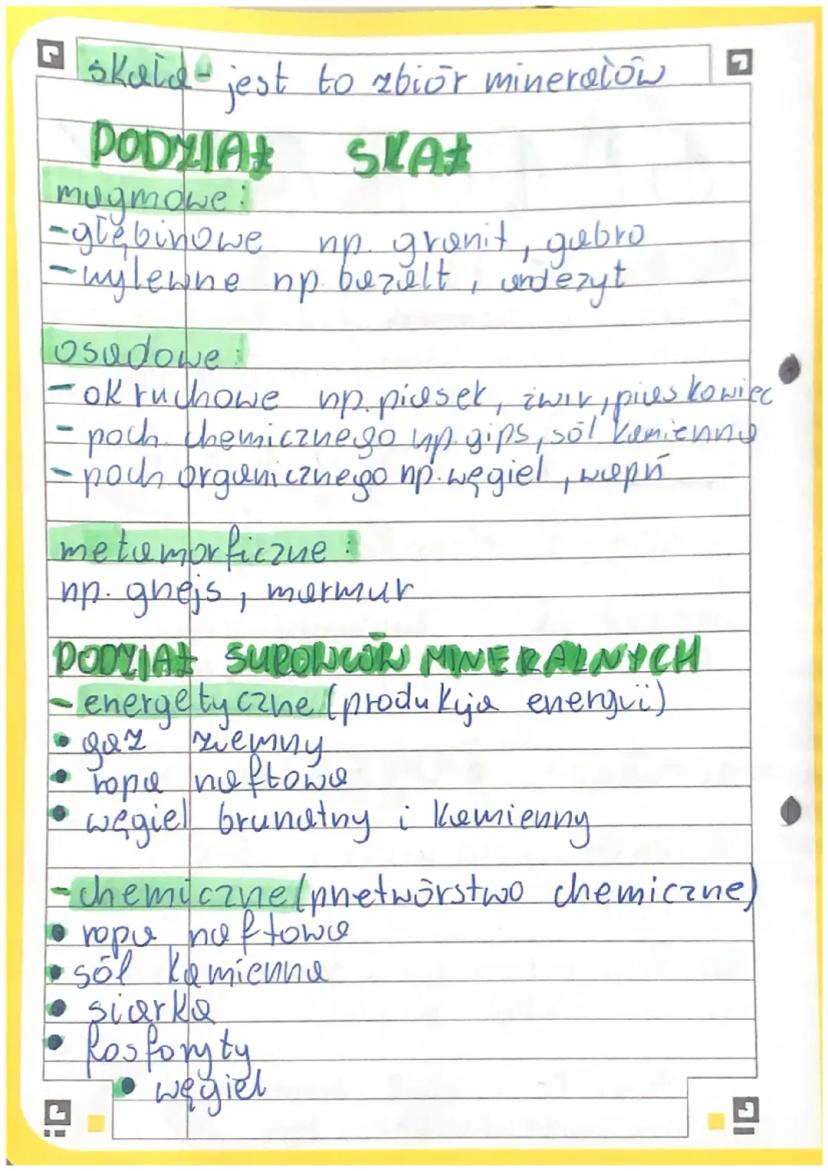 skała - jest to zbiór minerałów
PODZIAŁ SKAŁ
magmowe:
- głębinowe np. granit, gabro
- wylewne np. bazalt, andezyt
osadowe:
- okruchowe np. piasek, żwir, piaskowiec
- poch. chemicznego np. gips, sól kamienna
- poch organicznego np. węgiel, wapń
metamorficzne:
np. gnejs, marmur
PODZIAŁ SUROWCÓW MINERALNYCH
- energetyczne (produkcja energii)
• gaz ziemny
• ropa naftowa
• węgiel brunatny i kamienny
- chemiczne (przetwórstwo chemiczne)
• ropa naftowa
• sól kamienna
• siarka
• fosforyty
• węgiel